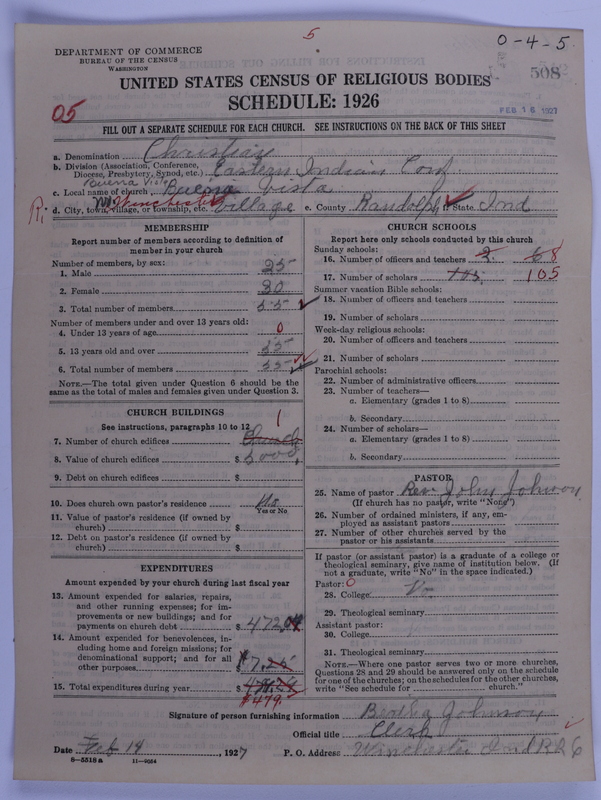 5
0-4-5
DEPARTMENT OF COMMERCE
BUREAU OF THE CENSUS
WASHINGTON
508
UNITED STATES CENSUS OF RELIGIOUS BODIES
SCHEDULE: 1926
05
FEB 16 1927
FILL OUT A SEPARATE SCHEDULE FOR EACH CHURCH. SEE INSTRUCTIONS ON THE BACK OF THIS SHEET
a. Denomination Christian
b. Division (Association, Conference, Diocese, Presbytery, Synod, etc.) Eastern Indiana Conf
Buena Vista
c. Local name of church Buena Vista
R. d. City, town, village, or township, etc. Winchester Village e. County Randolph f. State Ind
MEMBERSHIP
Report number of members according to definition of member in your church
Number of members, by sex:
1. Male 25
2. Female 30
3. Total number of members 55
Number of members under and over 13 years old:
4. Under 13 years of age 0
5. 13 years old and over 55
6. Total number of members 55
NOTE.—The total given under Question 6 should be the same as the total of males and females given under Question 3.
CHURCH BUILDINGS
See instructions, paragraphs 10 to 12
1
7. Number of church edifices Church
8. Value of church edifices $ 5000.
9. Debt on church edifices $
10. Does church own pastor's residence No
Yes or No
11. Value of pastor's residence (if owned by church) $
12. Debt on pastor's residence (if owned by church) $
EXPENDITURES
Amount expended by your church during last fiscal year
13. Amount expended for salaries, repairs, and other running expenses; for improvements or new buildings; and for payments on church debt $ 472.
14. Amount expended for benevolences, including home and foreign missions; for denominational support; and for all other purposes $ 7.25
15. Total expenditures during year $
$479.
CHURCH SCHOOLS
Report here only schools conducted by this church
Sunday schools:
16. Number of officers and teachers 8
17. Number of scholars 103. 105
Summer vacation Bible schools:
18. Number of officers and teachers
19. Number of scholars
Week-day religious schools:
20. Number of officers and teachers
21. Number of scholars
Parochial schools:
22. Number of administrative officers
23. Number of teachers—
a. Elementary (grades 1 to 8)
b. Secondary
24. Number of scholars—
a. Elementary (grades 1 to 8)
b. Secondary
PASTOR
25. Name of pastor Rev. John Johnson
(If church has no pastor, write "None")
26. Number of ordained ministers, if any, employed as assistant pastors
27. Number of other churches served by the pastor or his assistants
If pastor (or assistant pastor) is a graduate of a college or theological seminary, give name of institution below. (If not a graduate, write "No" in the space indicated.)
Pastor: 0
28. College
29. Theological seminary
Assistant pastor:
30. College
31. Theological seminary
NOTE.—Where one pastor serves two or more churches, Questions 28 and 29 should be answered only on the schedule for one of the churches; on the schedules for the other churches, write "See schedule for church."
Signature of person furnishing information Bertha Johnson
Official title Clerk
Date Feb 14, 1927 P. O. Address Winchester Ind RR 6
8-5518 a 11-9054